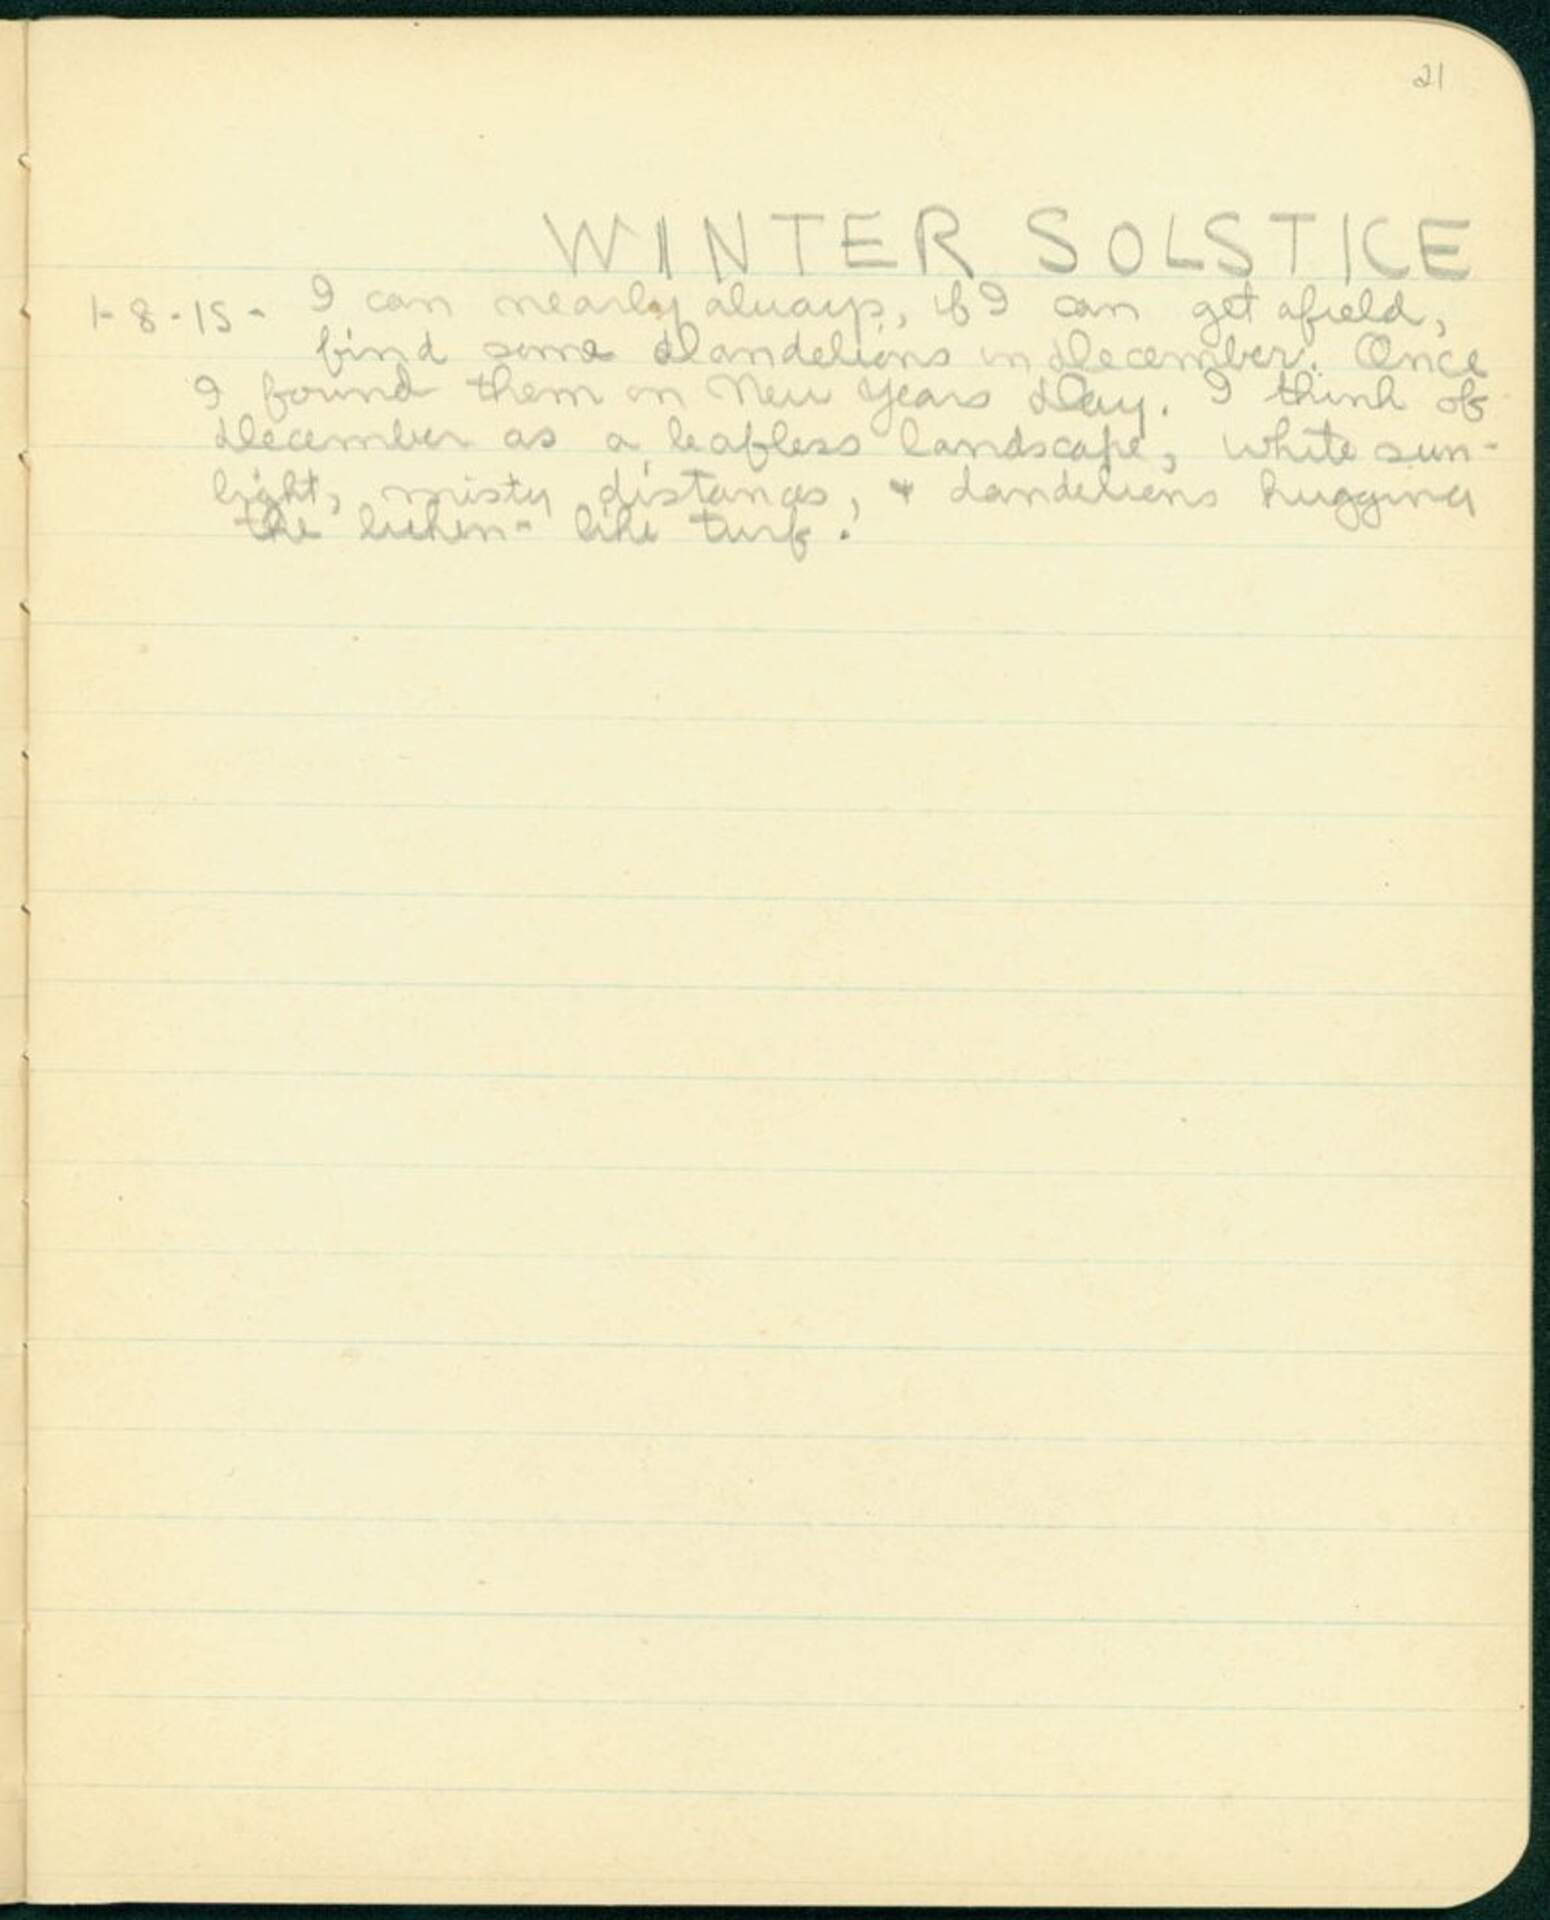 21
WINTER SOLSTICE
1-8-15- I can nearly always, if I can get afield,
find some dandelions in December. Once
I found them on New Years Day. I think of
December as a leafless landscape, white sun-
light, misty distances, & dandelions hugging
the lichen-like turf.